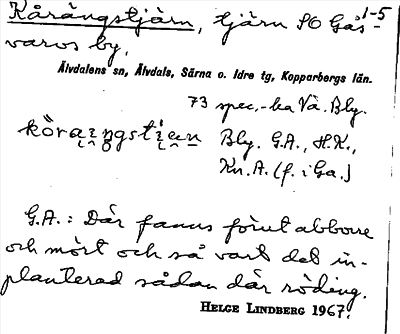 1-5
Kårängstjärn, tjärn SO Gås-
varos by.
Älvdalens sn, Älvdals, Särna o. Idre tg, Kopparbergs län.
73 spec.-ka Vä. Bly.
Bly. G.A., H.K.,
Kn. A. (f. i Ga.)
G.A.: Där fanns förut abborre
och mört och så vart det in-
planterad sådan där röding.
HELGE LINDBERG 1967.